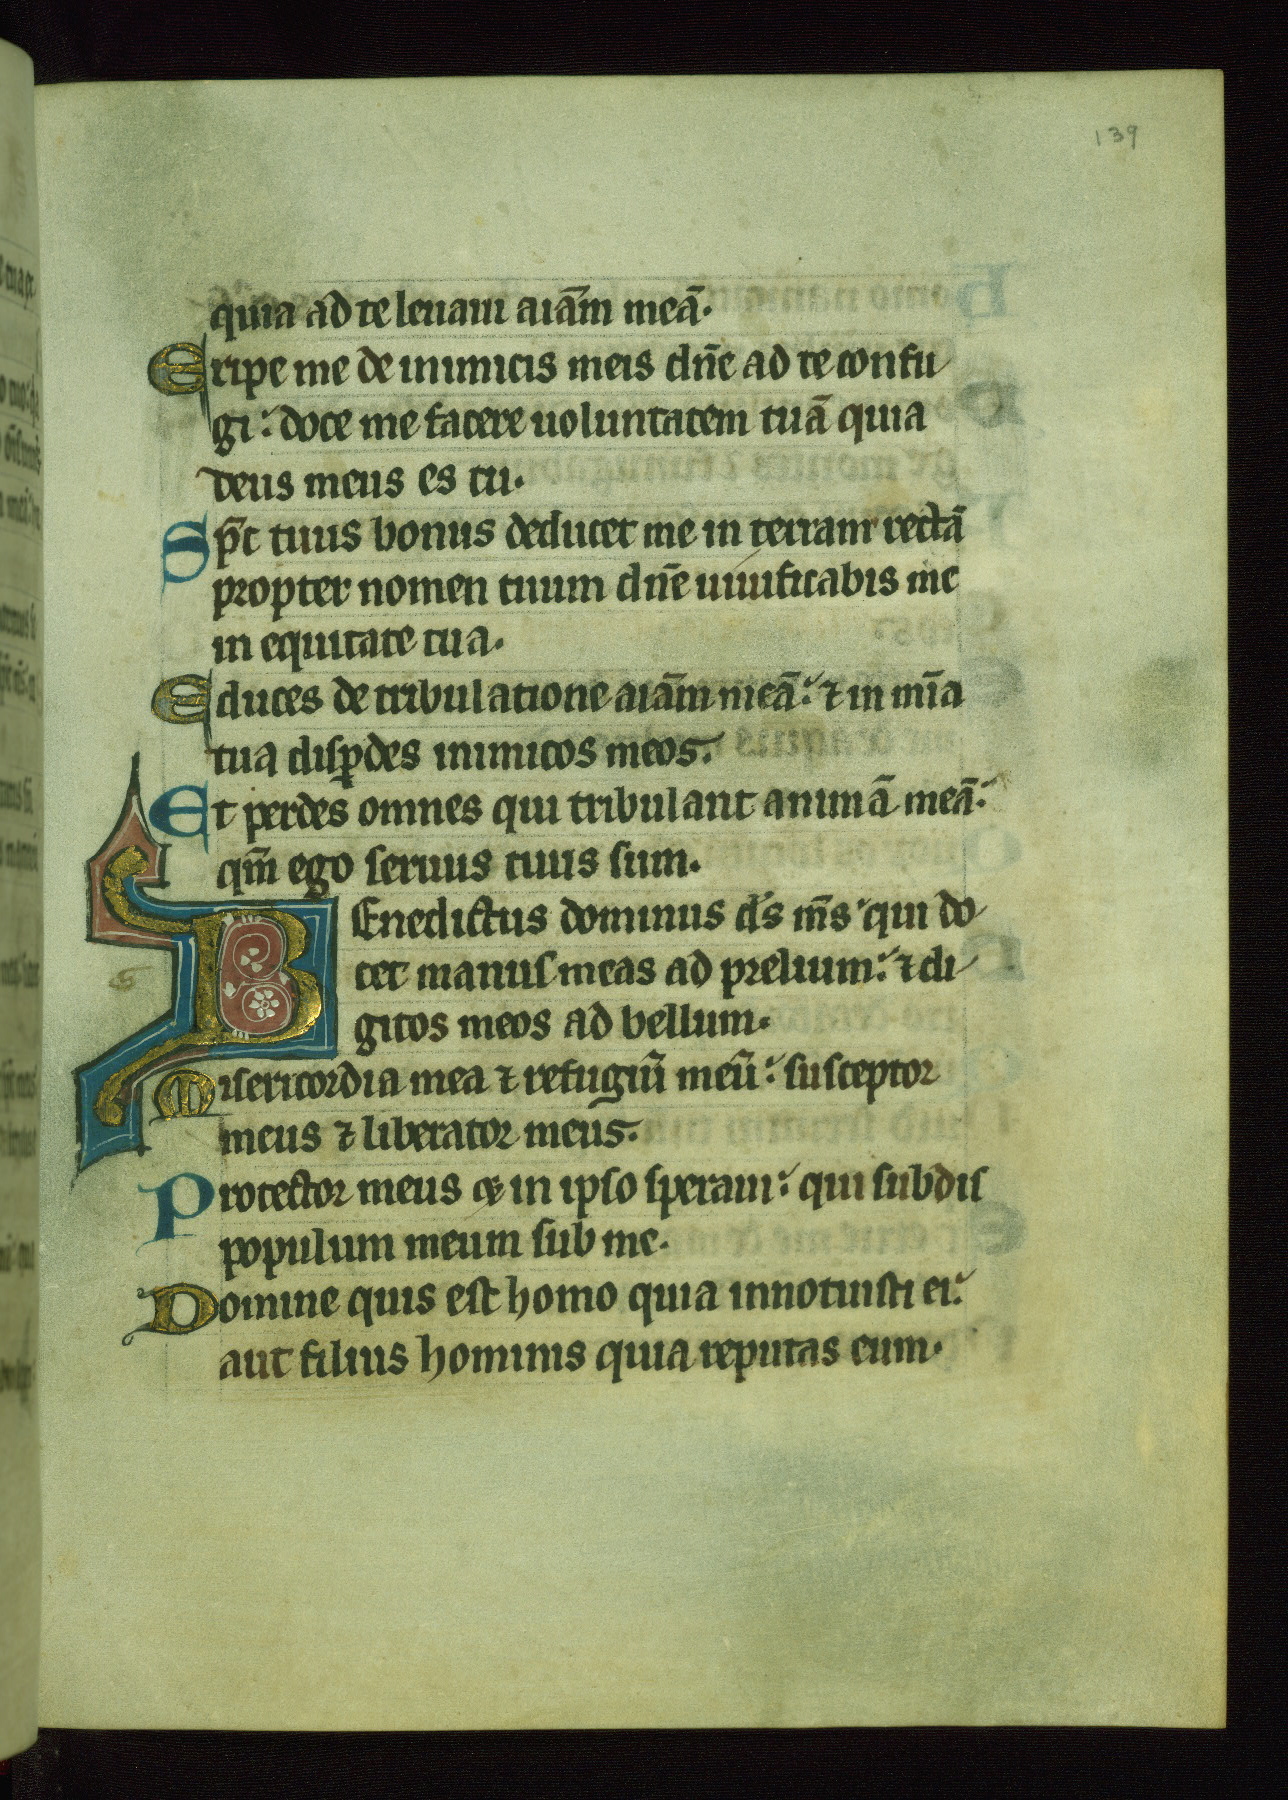 139
quia ad te leuaui aiām meā.
Eripe me de inimicis meis dn̄e ad te confu
gi: doce me facere uoluntatem tuā quia
deus meus es tu.
Sp̄c tuus bonus deducet me in terram rectā
propter nomen tuum dn̄e uiuificabis me
in equitate tua.
Educes de tribulatione aiām meā: ⁊ in mīa
tua disꝑdes inimicos meos.
Et perdes omnes qui tribulant animā meā:
qm̄ ego seruus tuus sum.
BEnedictus dominus ds̄ ms̄ qui do
cet manus meas ad prelium: ⁊ di
gitos meos ad bellum.
Misericordia mea ⁊ refugiū meū: susceptor
meus ⁊ liberator meus.
Protector meus ⁊ in ipso speraui: qui subdis
populum meum sub me.
Domine quis est homo quia innotuisti ei:
aut filius hominis quia reputas eum.